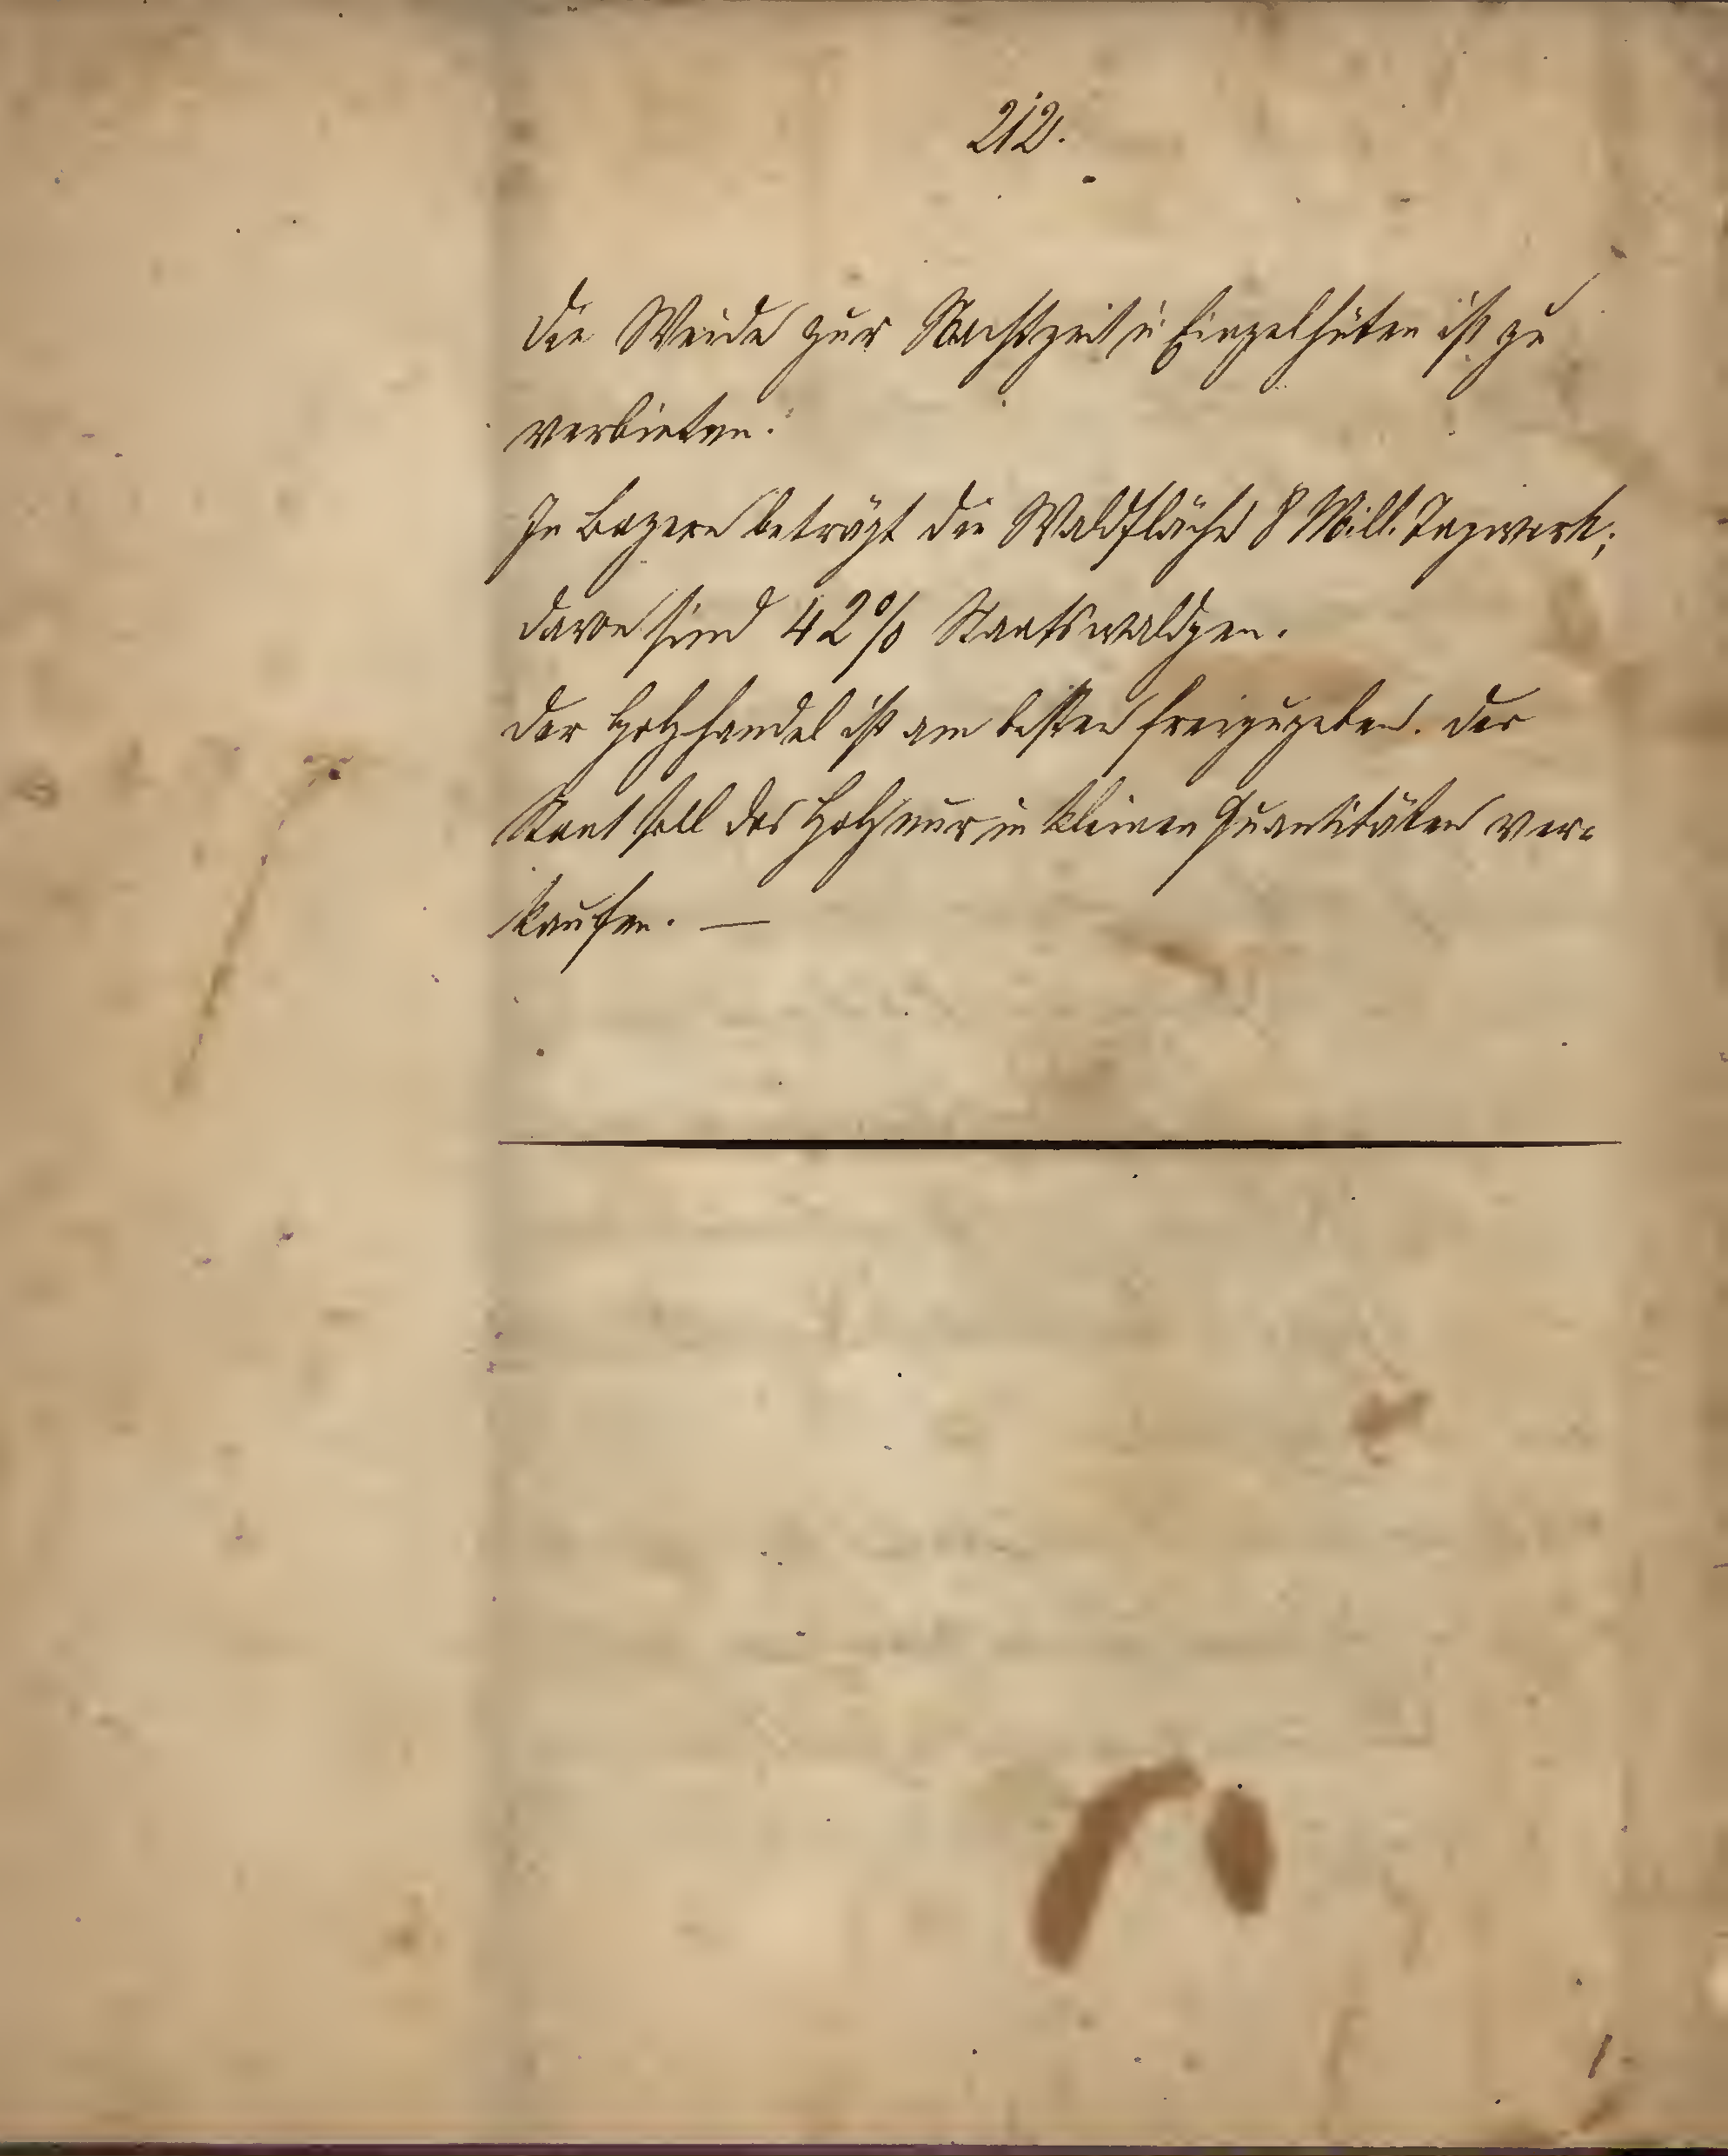 212.
Die Weide zur Nachtzeit u Einzelhüten ist zu
verbieten.
In Bayern beträgt die Waldfläche 8 Mill. Tagwerk;
davon sind 42% Staatswaldgen.
Der Holzhandel ist am besten freizugeben. Der
Staat soll das Holz nur in kleinen Quantitäten ver=
kaufen. —